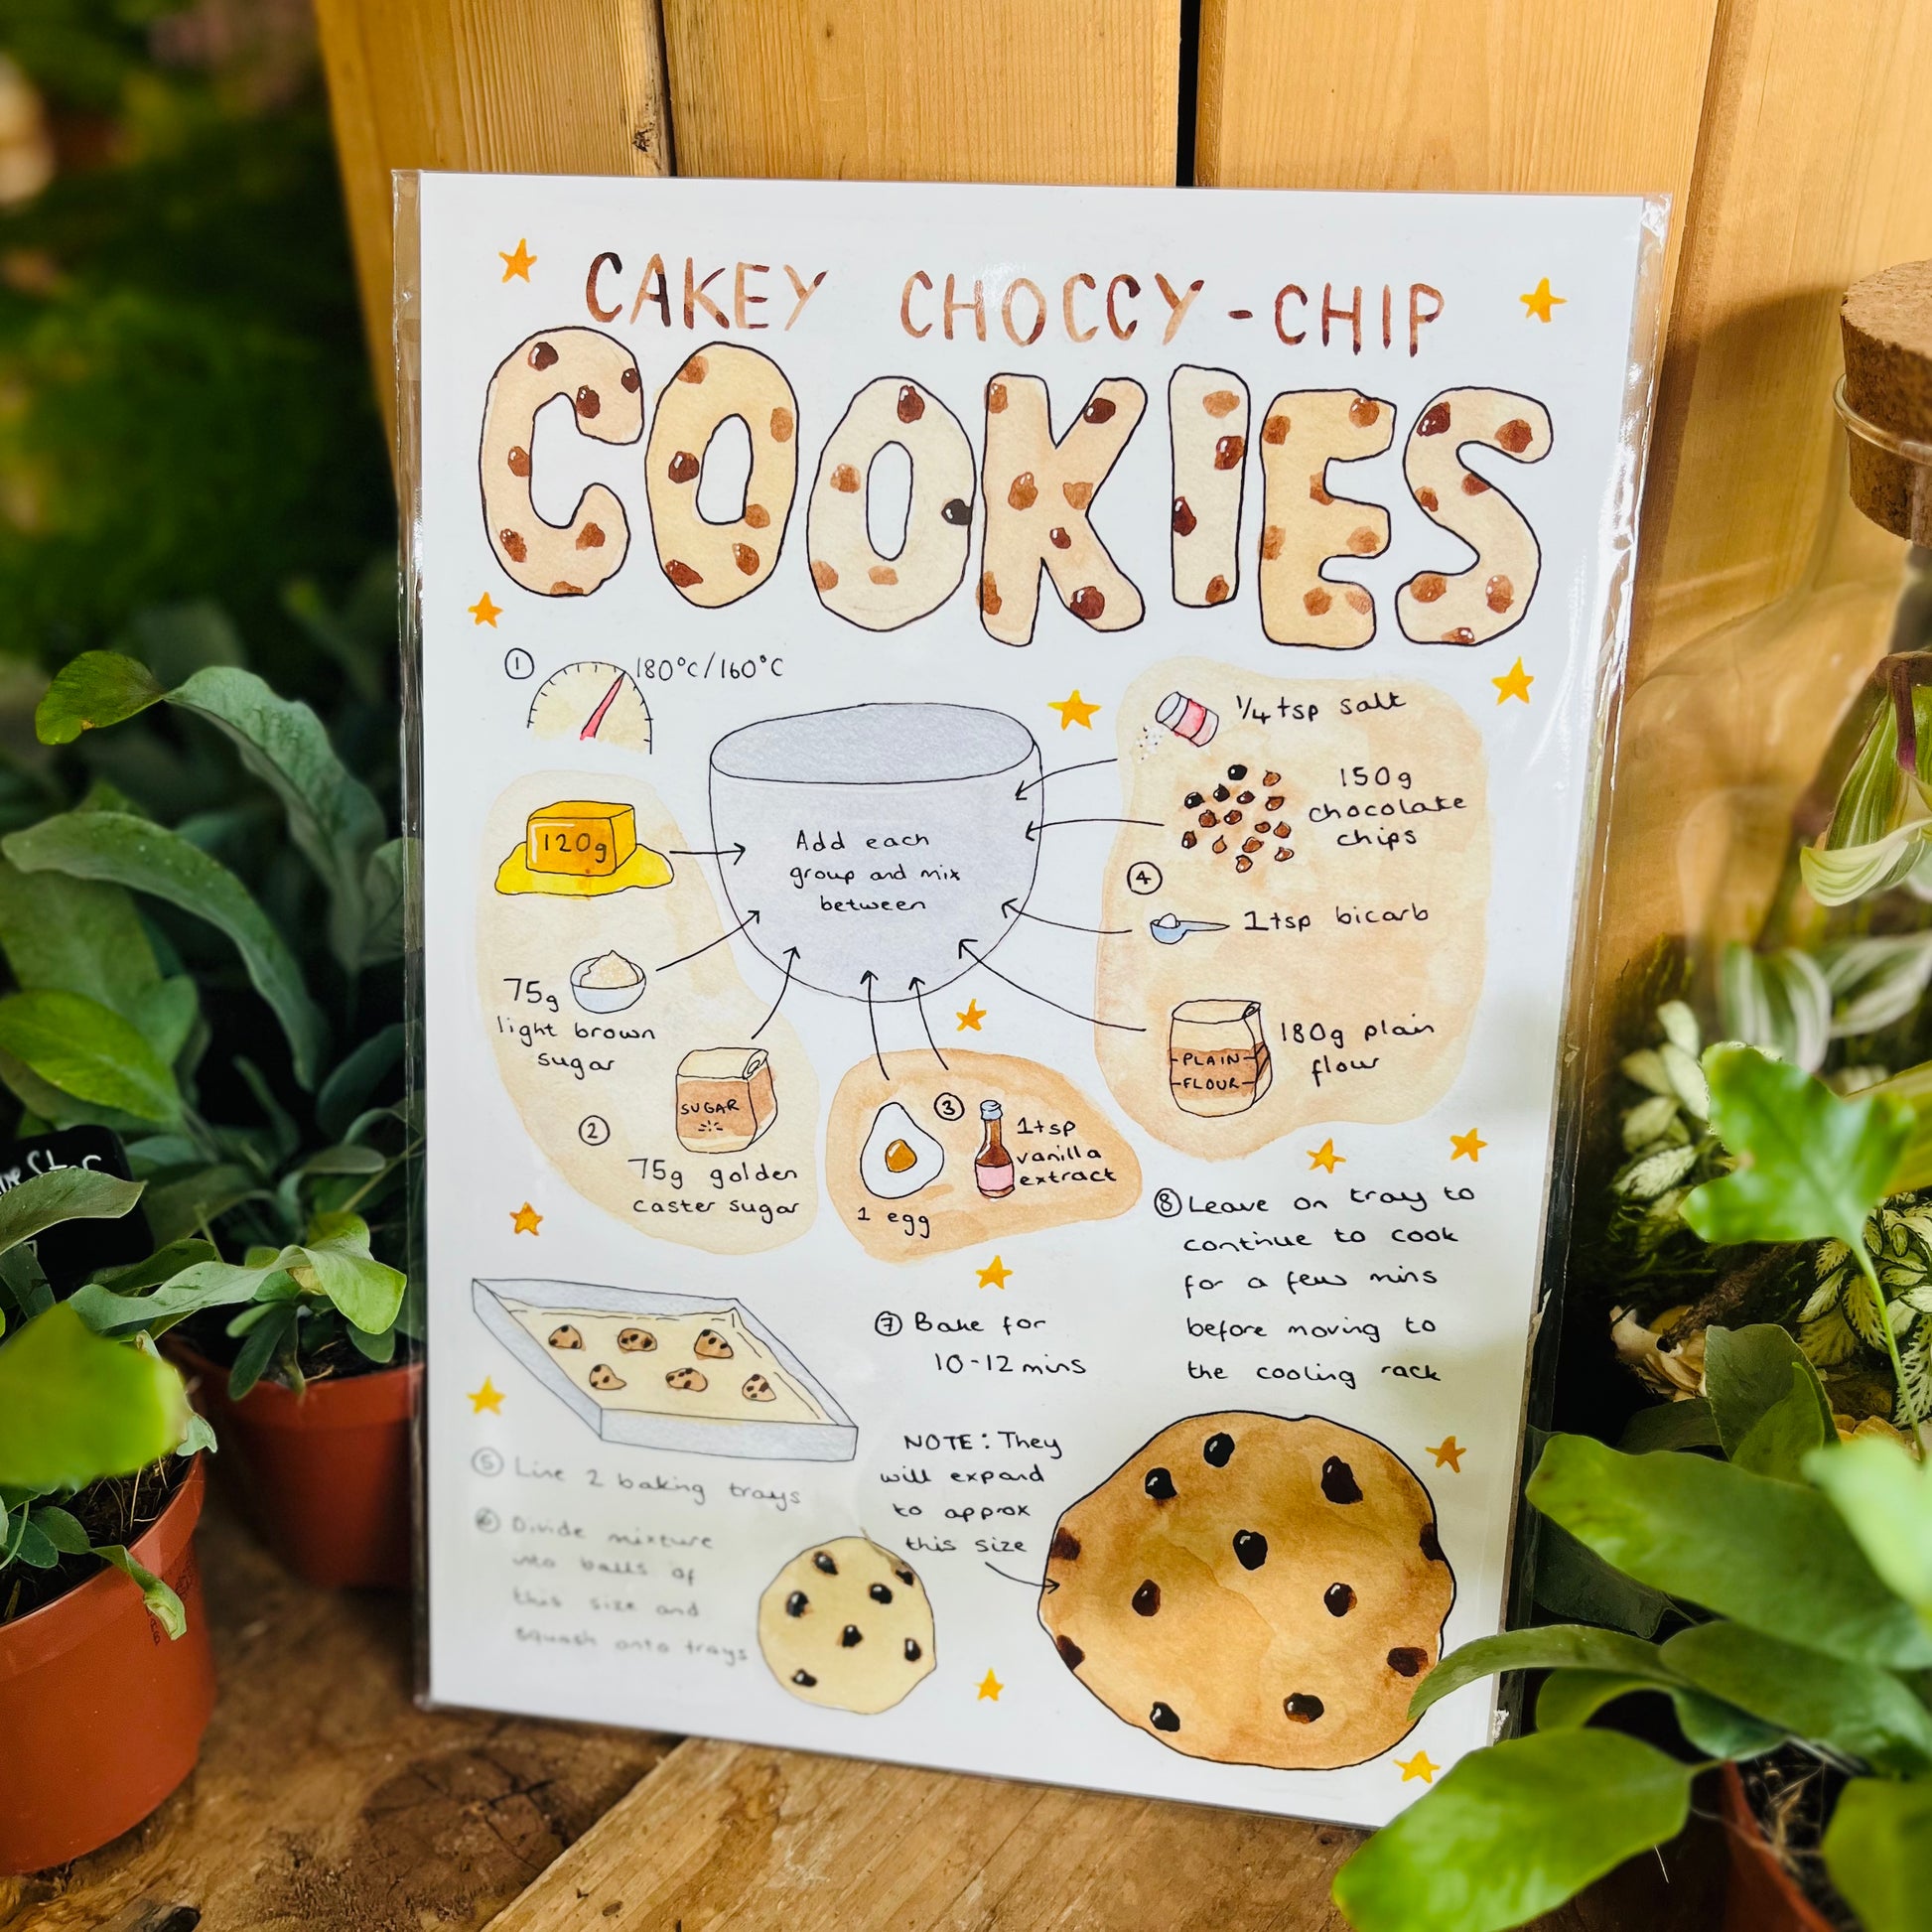 CAKEY CHOCCY-CHIP
COOKIES
① 180°C/160°C
120g
75g
light brown
sugar
②
SUGAR
75g golden
caster sugar
Add each
group and mix
between
③
1 egg
1tsp
vanilla
extract
1/4 tsp salt
150g
chocolate
chips
④
1tsp bicarb
PLAIN
FLOUR
180g plain
flour
⑤ Line 2 baking trays
⑥ Divide mixture
into balls of
this size and
squash onto trays
⑦ Bake for
10-12 mins
NOTE: They
will expand
to approx
this size
⑧ Leave on tray to
continue to cook
for a few mins
before moving to
the cooling rack